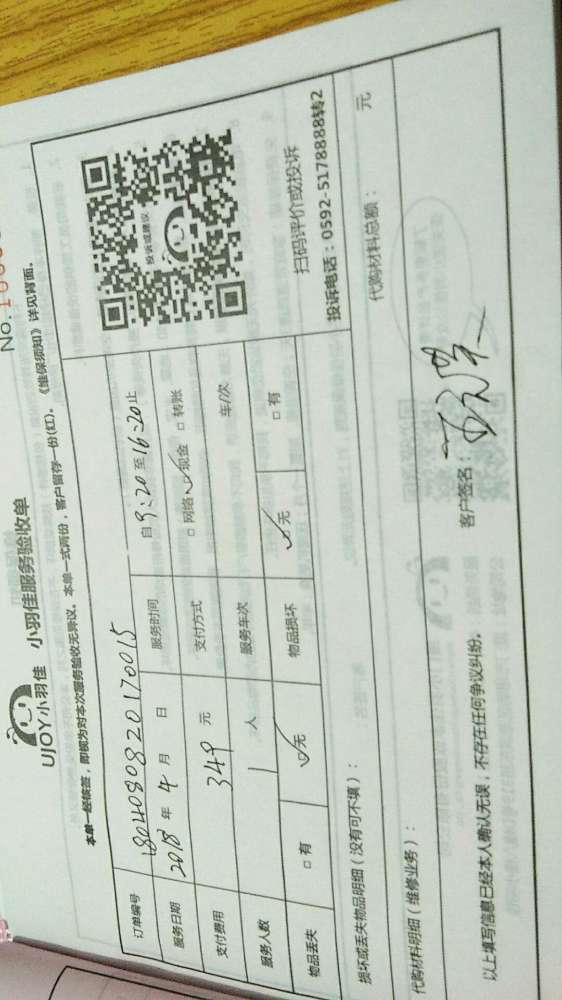 No.
UJOY小羽佳 小羽佳服务验收单
本单一经核签，即视为对本次服务验收无异议。本单一式两份，客户留存一份(红)。《维保须知》详见背面。
订单编号 1804080820170015
服务日期 2018年4月 日 服务时间 自9:20至16:20止
支付费用 349元 支付方式 □网络 ✓现金 □转账
服务人数 1人 服务车次 车/次
物品丢失 □有 ✓无 物品损坏 ✓无 □有
投诉或建议
扫码评价或投诉
投诉电话：0592-5178888转2
损坏或丢失物品明细（没有可不填）：
代购材料明细（维修业务）： 代购材料总额： 元
以上填写信息已经本人确认无误，不存在任何争议纠纷。 客户签名：